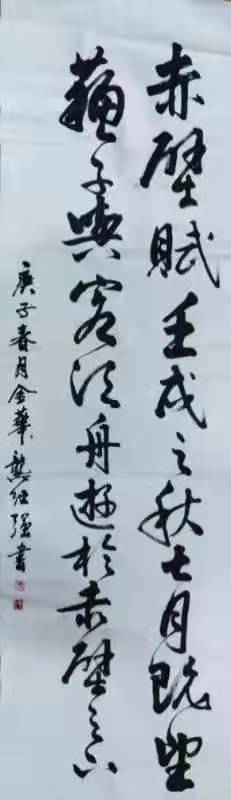 赤壁賦壬戌之秋七月既望
蘇子與客泛舟遊於赤壁之下
庚子春月金華龔經強書